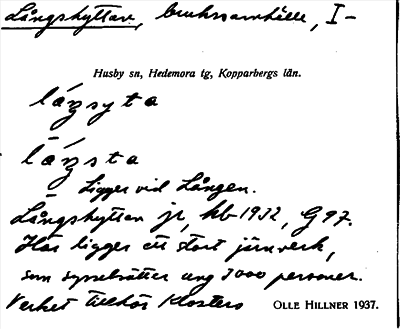 Långshyttan, brukssamhälle, I-
Husby sn, Hedemora tg, Kopparbergs län.
lǻŋsyta
lǻŋsta
Ligger vid Lången.
Långshyttan jr, hb 1932, G97.
Här ligger ett stort järnverk,
som sysselsätter ung 1000 personer.
Verket tillhör Klosters
OLLE HILLNER 1937.